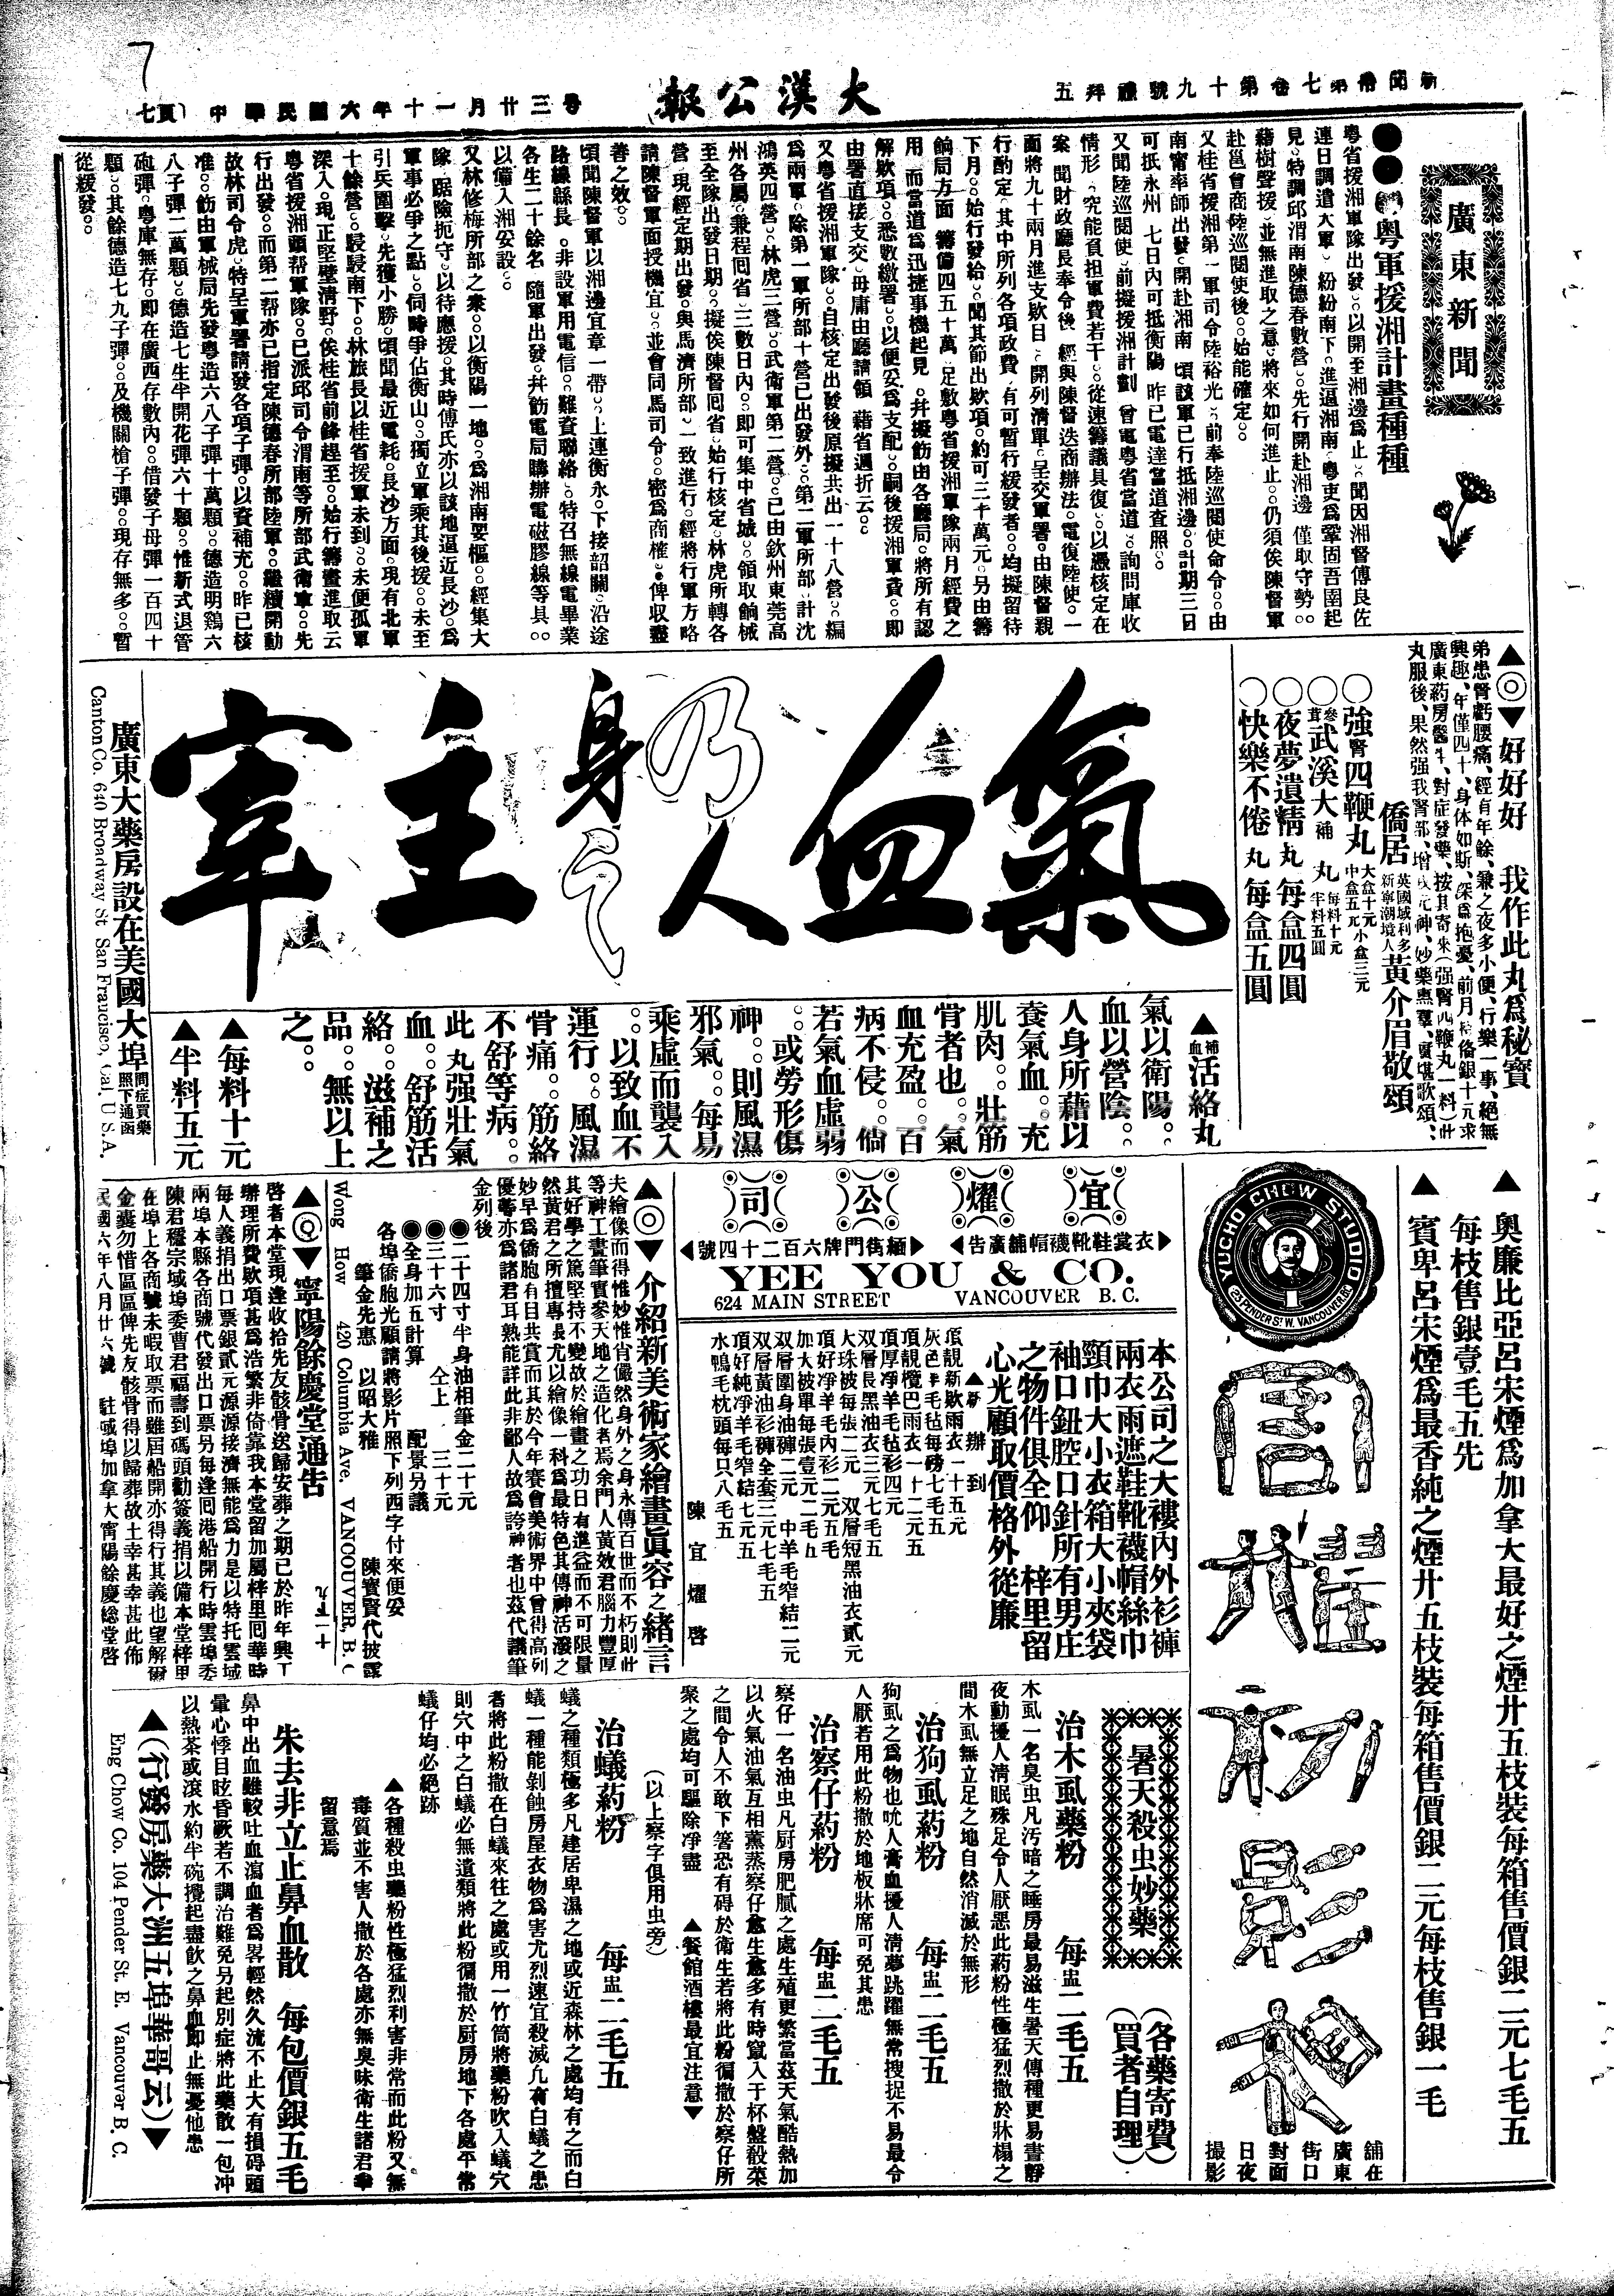 7
大漢公報
中華民國六年十一月廿三号
七頁
新聞部第七卷第十九號禮拜五
廣東新聞
●●●粵軍援湘計畫種種
粵省援湘軍隊出發。以開至湘邊爲止。聞因湘督傅良佐
連日調遣大軍 紛紛南下。進逼湘南。粵吏爲鞏固吾圉起
見。特調邱渭南陳德春數營。先行開赴湘邊 僅取守勢。
藉樹聲援 並無進取之意。將來如何進止。仍須俟陳督軍
赴邕會商陸巡閱使後。始能確定。
又桂省援湘第一軍司令陸裕光。前奉陸巡閱使命令。由
南甯率師出發。開赴湘南 頃該軍已行抵湘邊。計期三日
可抵永州 七日內可抵衡陽 昨已電達當道查照。
又聞陸巡閱使 前擬援湘計劃 曾電粵省當道 詢問庫收
情形 究能負担軍費若干。從速籌議具復。以憑核定在
案 聞財政廳長奉令後 經與陳督迭商辦法。電復陸使。一
面將九十兩月進支欵目。開列清單。呈交軍署。由陳督親
行酌定。其中所列各項政費 有可暫行緩發者。均擬留待
下月。始行發給。聞其節出欵項。約可三十萬元。另由籌
餉局方面 籌備四五十萬 足敷粵省援湘軍隊兩月經費之
用 而當道爲迅捷事機起見 幷擬飭由各廳局。將所有認
解欵項。悉數繳署。以便妥爲支配。嗣後援湘軍費。即
由署直接支交 毋庸由廳請領 藉省週折云。
又粵省援湘軍隊。自核定出發後原擬共出一十八營。編
爲兩軍。除第一軍所部十營已出發外。第二軍所部。計沈
鴻英四營。林虎三營。武衛軍第二營。已由欽州東莞高
州各屬。兼程囘省。三數日內。即可集中省城。領取餉械
至全隊出發日期。擬俟陳督囘省。始行核定。林虎所轄各
營。現經定期出發。與馬濟所部。一致進行。經將行軍方略
請陳督軍面授機宜。並會同馬司令。密爲商榷。俾收盡
善之效。
頃聞陳督軍以湘邊宜章一帶。上連衡永。下接韶關。沿途
路綫縣長。非設軍用電信。難資聯絡。特召無線電畢業
各生二十餘名 隨軍出發。幷飭電局購辦電磁膠線等具。
以備入湘妥設。
又林修梅所部之衆。以衡陽一地。爲湘南要樞。經集大
隊 踞險扼守。以待應援。其時傅氏亦以該地逼近長沙。爲
軍事必爭之點。同時爭佔衡山。獨立軍乘其後援。未至
引兵圍擊。先獲小勝。頃聞最近電耗。長沙方面。現有北軍
十餘營。駸駸南下。林旅長以桂省援軍未到。未便孤軍
深入。現正堅壁清野。俟桂省前鋒趕至。始行籌畫進取云
粵省援湘頭帮軍隊。已派邱司令渭南等所部武衛軍。先
行出發。而第二帮亦已指定陳德春所部陸軍。繼續開動
故林司令虎。特呈軍署請發各項子彈。以資補充。昨已核
准。飭由軍械局先發粵造六八子彈十萬顆。德造明鷄六
八子彈二萬顆。德造七生半開花彈六十顆。惟新式退管
砲彈。粵庫無存。即在廣西存數內。借發子母彈一百四十
顆。其餘德造七九子彈。及機關槍子彈。現存無多。暫
從緩發。
▲◎▼好好好 我作此丸爲秘寶
弟患腎虧腰痛、經有年餘、兼之夜多小便、行樂一事、絕無
興趣、年僅四十、身体如斯、深爲抱憂、前月
廣東葯房醫生、對症發藥、按其寄來(强腎四鞭丸一料)此
丸服後、果然强我腎部、
僑居英國域利多新寧潮境人黃介眉敬頌
○強腎四鞭丸 大盒十元 中盒五元 小盒三元
○參茸武溪大補丸 每料十元 半料五圓
○夜夢遺精丸每盒四圓
○快樂不倦丸每盒五圓
氣血乃人身之主宰
▲補血活絡丸
氣以衛陽。
血以營陰。
人身所藉以
養氣血。充
肌肉。壯筋
骨者也。氣
血充盈。百
病不侵。倘
若氣血虛弱
。或勞形傷
神。則風濕
邪氣。每易
乘虛而襲入
。以致血不
運行。風濕
骨痛。筋絡
不舒等病。
此丸强壯氣
血。舒筋活
絡。滋補之
品。無以上
之。
▲每料十元
▲半料五元
廣東大藥房設在美國大埠 問症買藥照下通函
Canton Co. 640 Broadway St. San Francisco, Cal. U.S.A.
▲奧廉比亞呂宋煙爲加拿大最好之煙廿五枝裝每箱售價銀二元七毛五
每枝售銀壹毛五先
▲賓卑呂宋煙爲最香純之煙廿五枝裝每箱售價銀二元每枝售銀一毛
YUCHO CHOW STUDIO
23 PENDER ST. W. VANCOUVER BC
舖在
廣東
街口
對面
日夜
撮影
宜耀公司
衣裳鞋靴襪帽舖廣告
緬街門牌六百二十四號
YEE YOU & CO.
624 MAIN STREET VANCOUVER B. C.
本公司之大褸內外衫褲
兩衣雨遮鞋靴襪帽絲巾
頸巾大小衣箱大小夾袋
袖口鈕腔口針所有男庄
之物件俱全仰 梓里留
心光顧取價格外從廉
▲新辦到
頂靚新欵雨衣一十五元
灰色羊毛毡每磅七毛五
頂靚欖巴雨衣一十二元五
頂厚淨羊毛毡衫四元
双層長黑油衣三元七毛五
大珠被每張二元 双層短黑油衣貳元
頂好淨羊毛內衫二元五毛
加大被單每張壹元二毛五
双層圍身油褲二元 中羊毛窄結二元
双層黃油衫褲全套三元七毛五
頂好純淨羊毛窄結七元五
水鴨毛枕頭每只八毛五
陳宜耀啓
▲◎▼介紹新美術家繪畫眞容之緒言
夫繪像而得惟妙惟肖儼然身外之身永傳百世而不朽則此
等神工畫筆實參天地之造化者焉余門人黃效君腦力豐厚
其好學之篤堅持不變故於繪畫之功日有進益而不可限量
然黃君之所擅專長尤以繪像一科爲最特色其傳神活潑之
妙早爲僑胞有目共賞而其於今年賽會美術界中曾得高列
優等亦爲諸君耳熟能詳此非鄙人故爲誇神者也茲代議筆
金列後
●二十四寸半身油相筆金二十元
●三十六寸 仝上 三十元
●全身加五計算 配景另議
各埠僑胞光顧請將影片照下列西字付來便妥
筆金先惠 以昭大雅 陳寳賢代披露
Wong How 420 Columbia Ave. VANCOUVER, B. C.
▲◎▼寧陽餘慶堂通告
啓者本堂現逢收拾先友骸骨送歸安葬之期已於昨年興工
辦理所費欵項甚爲浩繁非倚靠我本堂留加屬梓里囘華時
每人義捐出口票銀貳元源源接濟無能爲力是以特托雲域
兩埠本縣各商號代發出口票另每逢囘港船開行時雲埠委
陳君穩宗域埠委曹君福壽到碼頭勸簽義捐以備本堂梓里
在埠上各商號未暇取票而雖屆船開亦得行其義也望解爾
金囊勿惜區區俾先友骸骨得以歸葬故土幸甚幸甚此佈
民國六年八月廿六號 駐域埠加拿大寗陽餘慶総堂啓
暑天殺虫妙藥
(各藥寄費)
(買者自理)
治木虱藥粉 每盅二毛五
木虱一名臭虫凡汚暗之睡房最易滋生暑天傳種更易晝靜
夜動擾人清眠殊足令人厭惡此葯粉性極猛烈撒於牀榻之
間木虱無立足之地自然消滅於無形
治狗虱葯粉 每盅二毛五
狗虱之爲物也吮人膏血擾人清夢跳躍無常搜捉不易最令
人厭若用此粉撒於地板牀席可免其患
治察仔葯粉 每盅二毛五
察仔一名油虫凡厨房肥膩之處生殖更繁當茲天氣酷熱加
以火氣油氣互相薰蒸察仔愈生愈多有時竄入于杯盤殽菜
之間令人不敢下箸恐有碍於衛生若將此粉徧撒於察仔所
聚之處均可驅除净盡 ▲餐館酒樓最宜注意▼
(以上察字俱用虫旁)
治蟻葯粉 每盅二毛五
蟻之種類極多凡建居卑濕之地或近森林之處均有之而白
蟻一種能剝蝕房屋衣物爲害尤烈速宜殺滅凢有白蟻之患
者將此粉撒在白蟻來往之處或用一竹筒將藥粉吹入蟻穴
則穴中之白蟻必無遺類將此粉徧撒於厨房地下各處平常
蟻仔均必絕跡
▲各種殺虫藥粉性極猛烈利害非常而此粉又無
毒質並不害人撒於各處亦無臭味衛生諸君幸
留意焉
朱去非立止鼻血散 每包價銀五毛
鼻中出血雖較吐血瀉血者爲畧輕然久流不止大有損碍頭
暈心悸目眩昏厥若不調治難免另起別症將此藥散一包冲
以熱茶或滾水約半碗攪起盡飲之鼻血即止無憂他患
▲(行發房藥大洲五埠華哥云)▼
Eng Chow Co. 104 Pender St. E. Vancouver B. C.